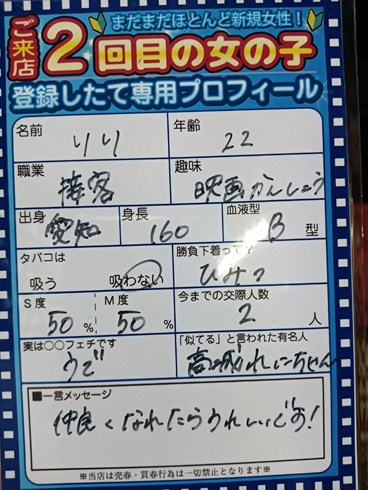 まだまだほとんど新規女性!
ご来店2回目の女の子
登録したて専用プロフィール
名前 りり 年齢 22
職業 接客 趣味 映画かんしょう
出身 愛知 身長 160 血液型 B 型
タバコは 吸う 吸わない 勝負下着って? ひみつ
S度 50% M度 50% 今までの交際人数 2人
実は○○フェチです うで 「似てる」と言われた有名人 高城れにちゃん
■一言メッセージ
仲良くなれたらうれしいです!
※当店は売春・買春行為は一切禁止となります※